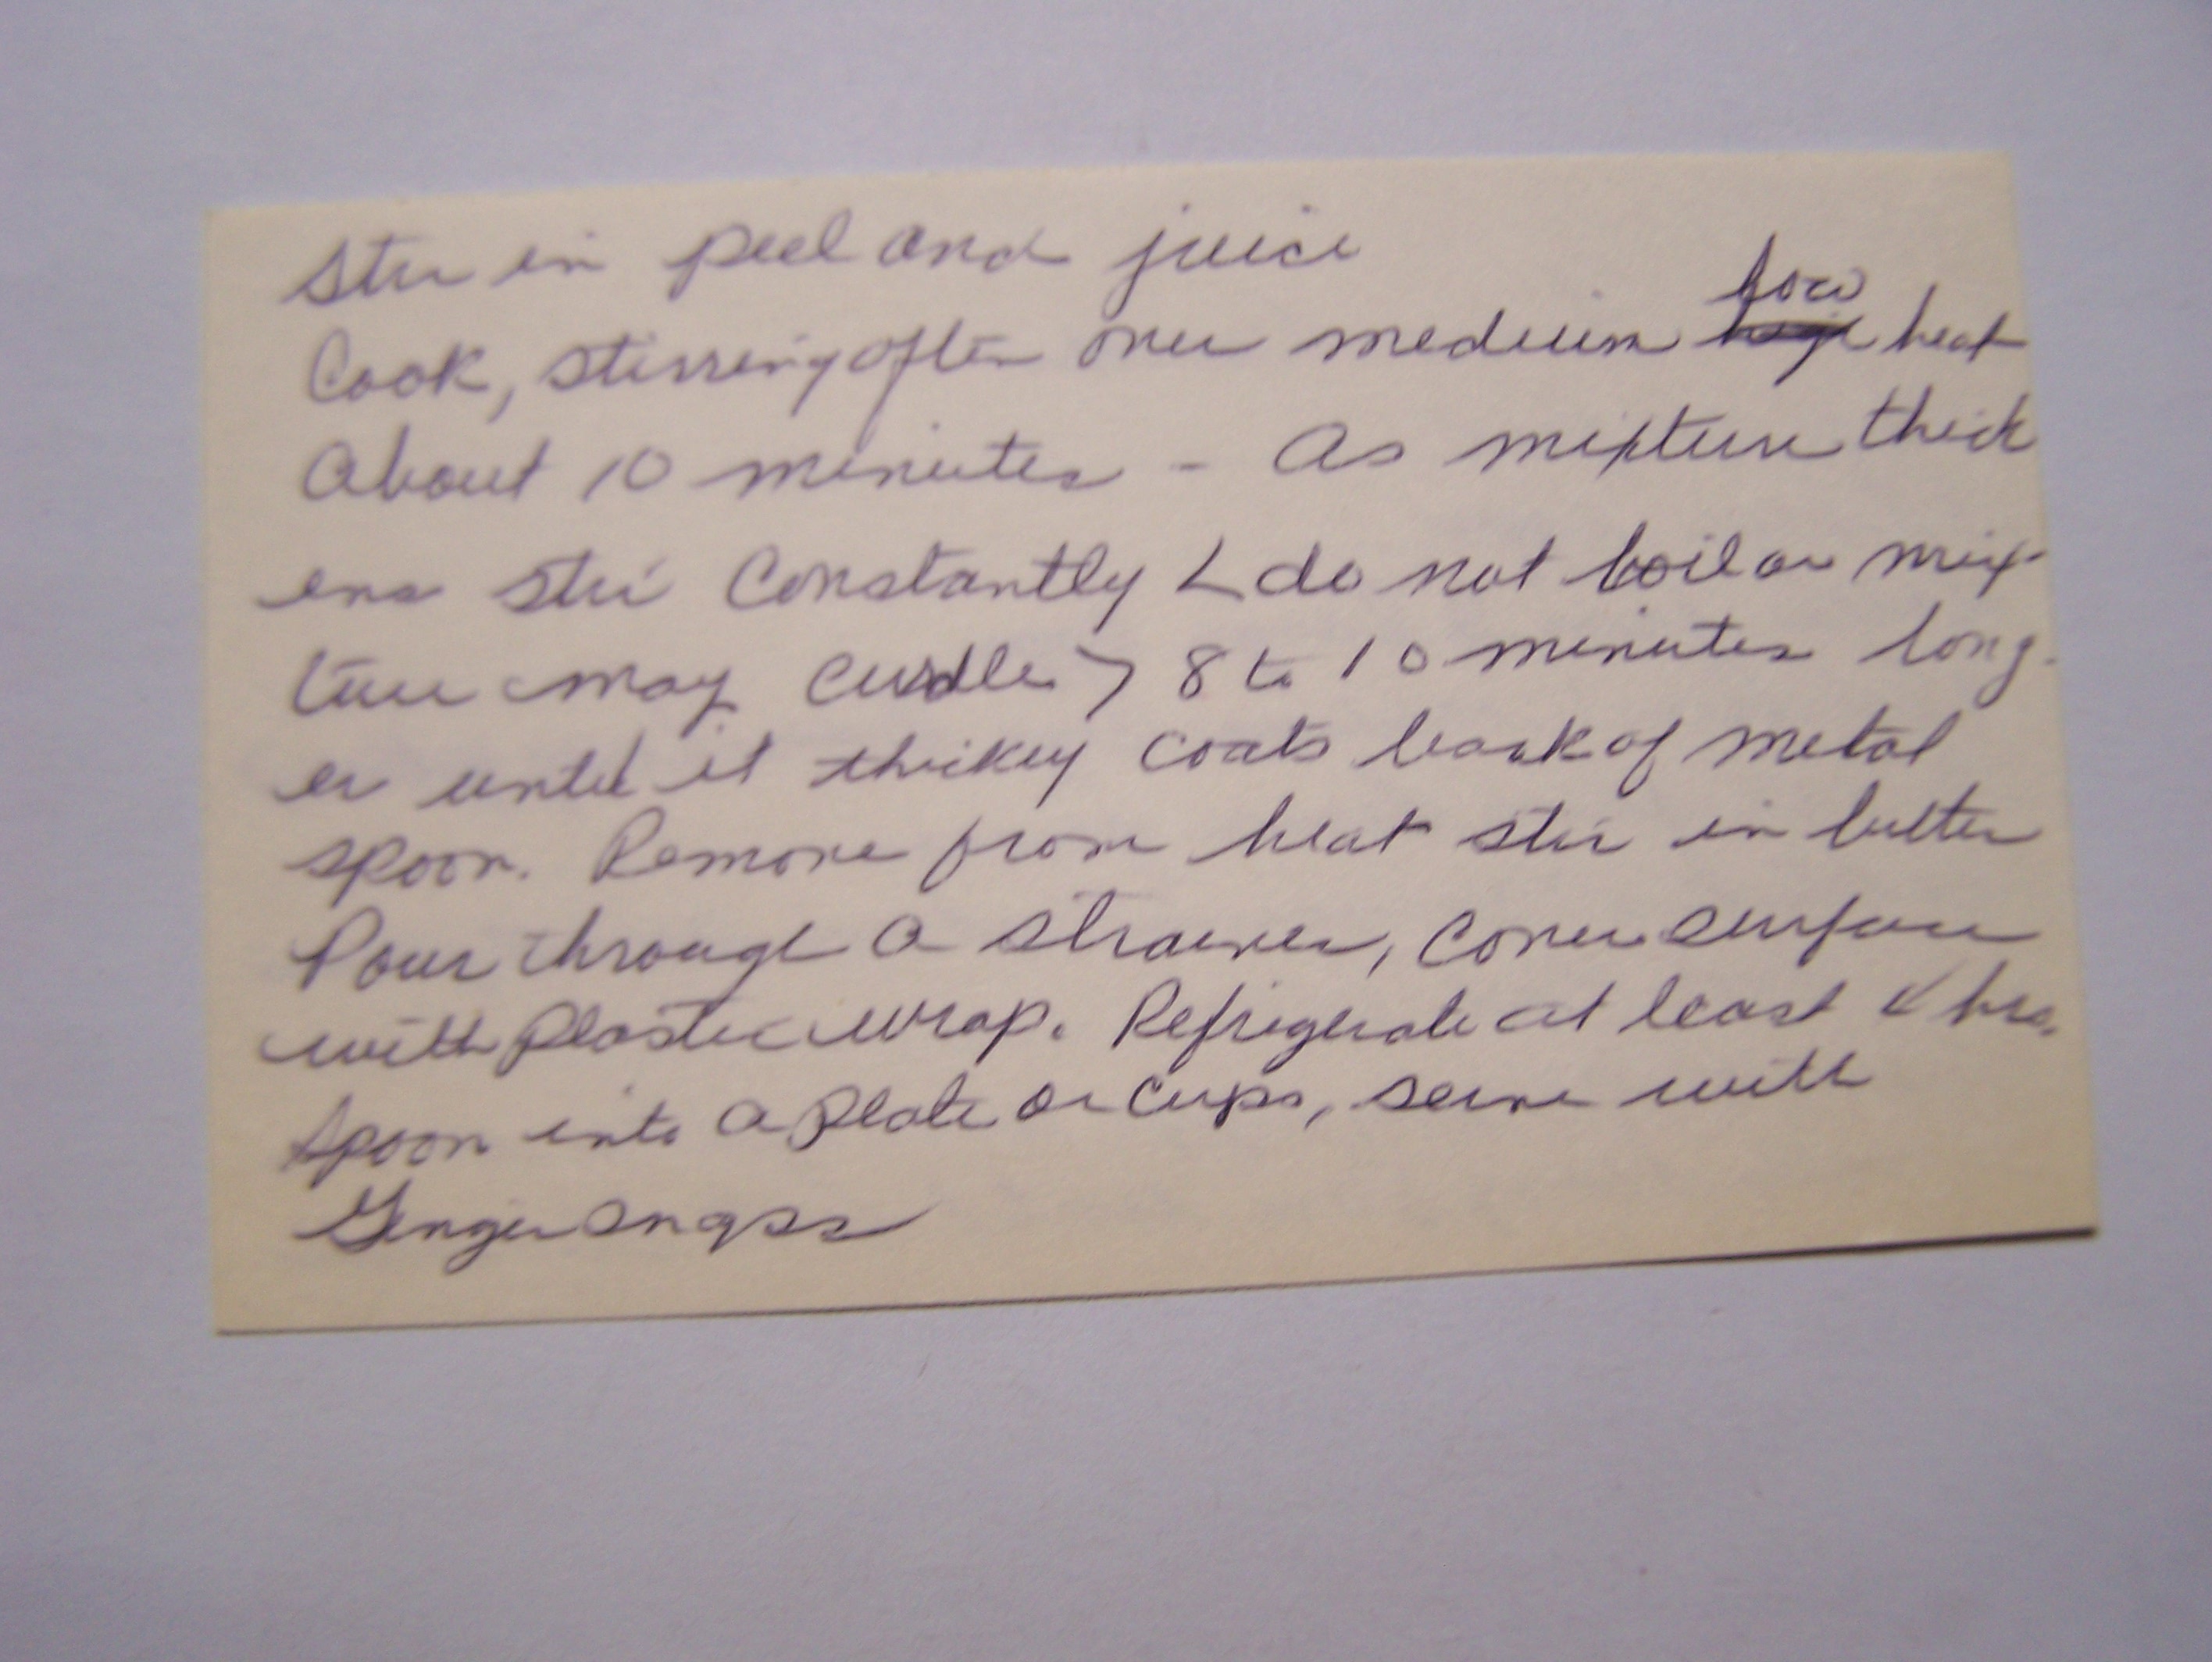 Stir in peel and juice
low
Cook, stirring often over medium heat
About 10 minutes - As mixture thick
ens stir Constantly < do not boil or mix-
ture may curdle > 8 to 10 minutes long-
er until it thickey coats back of metal
spoon. Remove from heat stir in butter
Pour through a strainer, cover surface
with Plastic wrap. Refrigerate at least hrs.
Spoon into a Plate or cups, serve with
Ginger snaps